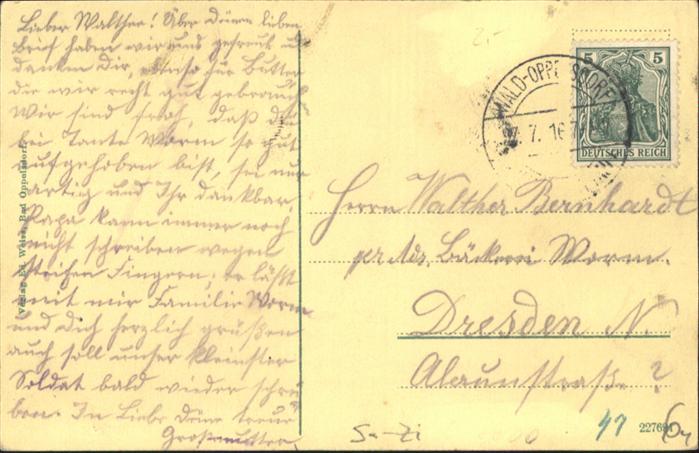 Lieber Walther! Über Deinen lieben
Brief haben wir uns gefreut u
danken Dir, ebenso für Butter
die wir recht gut gebrauch
Wir sind froh, daß du
bei Tante Worm so gut
aufgehoben bist, sei nur
artig und Ihr dankbar
Papa kann immer noch
nicht schreiben wegen
steifen Fingern; er läßt
mit mir Familie Worm
und Dich herzlich grüßen
auch soll unser kleinster
Soldat bald wieder schrei
ben. In Liebe Deine treue
Großmutter
Verlag Bad Oppelsdorf
WALD-OPPELSDORF
7. 16
5 5
DEUTSCHES REICH
Herrn Walther Bernhardt
pr Adr. Bäckerei Worm.
Dresden N.
Alaunstraße ?
Sa-Zi
47